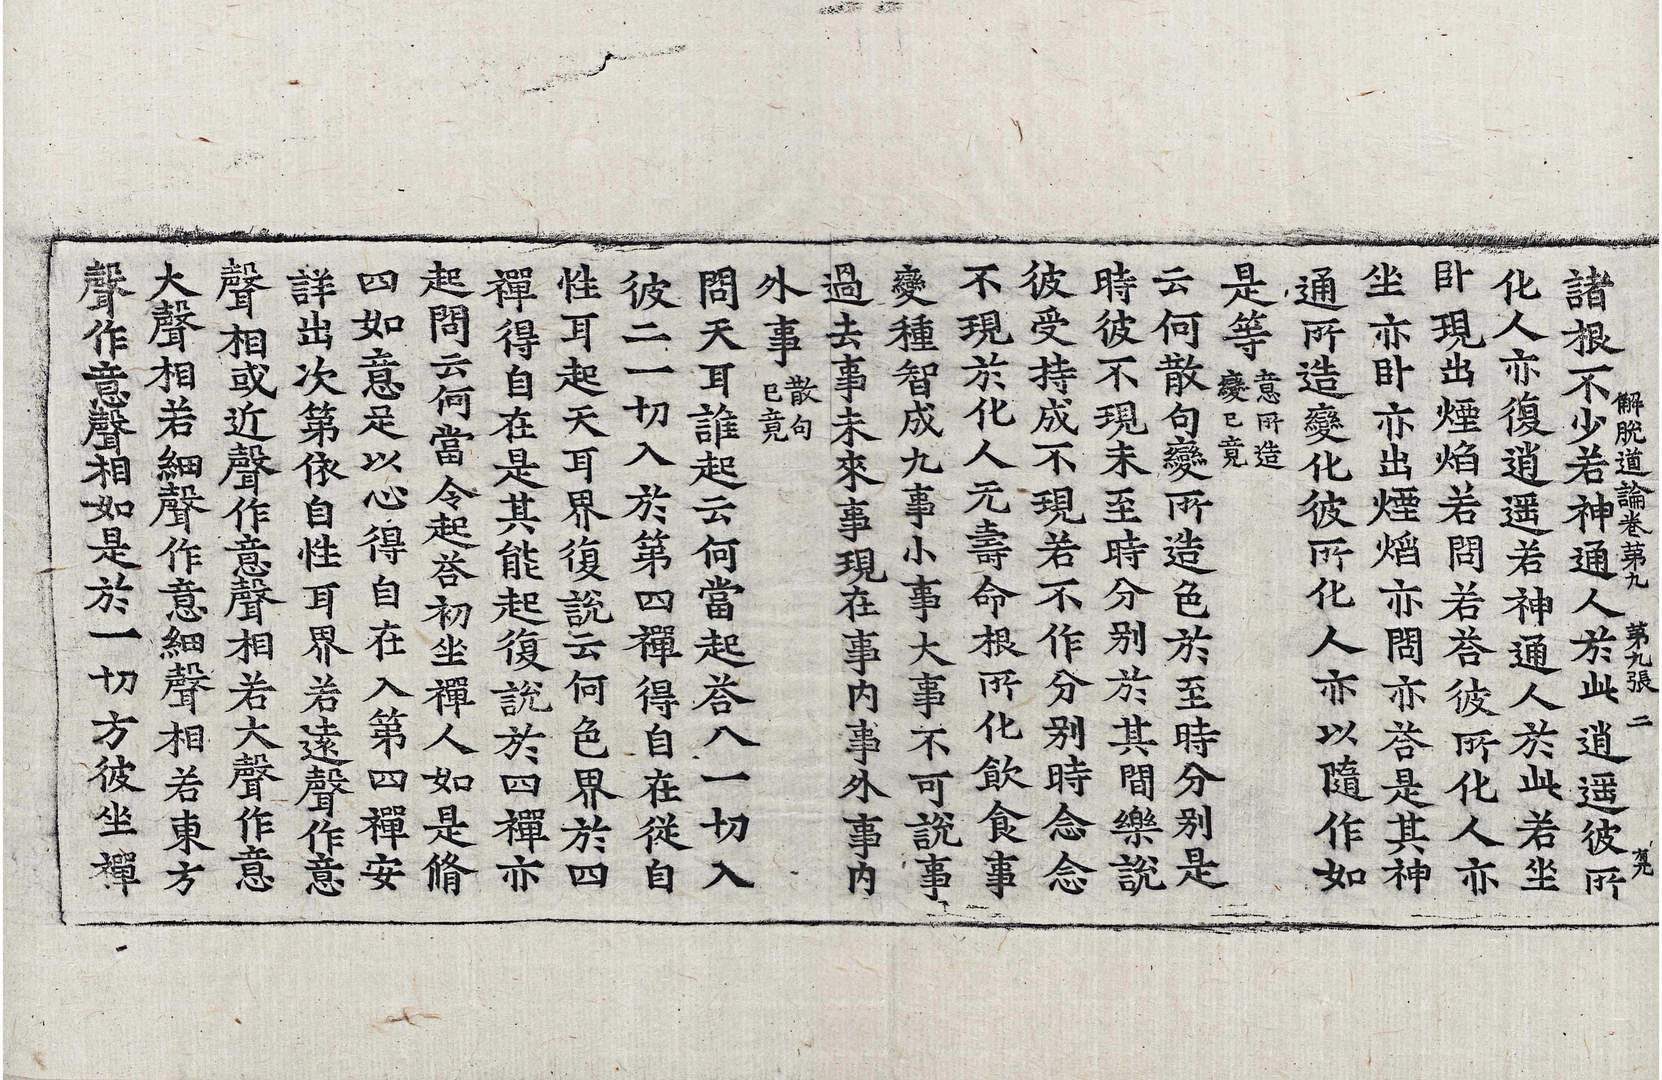 解脫道論卷第九　第九張　二
諸根不少若神通人於此逍遥彼所
化人亦復逍遥若神通人於此若坐
卧現出煙焰若問若荅彼所化人亦
坐亦卧亦出煙焰亦問亦荅是其神
通所造變化彼所化人亦以隨作如
是等意所造變已竟
云何散句變所造色於至時分别是
時彼不現未至時分别於其間樂說
彼受持成不現若不作分别時念念
不現於化人无壽命根所化飲食事
變種智成九事小事大事不可說事
過去事未來事現在事内事外事内
外事散句已竟
問天耳誰起云何當起荅八一切入
彼二一切入於第四禪得自在從自
性耳起天耳界復說云何色界於四
禪得自在是其能起復說於四禪亦
起問云何當令起荅初坐禪人如是脩
四如意足以心得自在入第四禪安
詳出次第依自性耳界若遠聲作意
聲相或近聲作意聲相若大聲作意
大聲相若細聲作意細聲相若東方
聲作意聲相如是於一切方彼坐禪